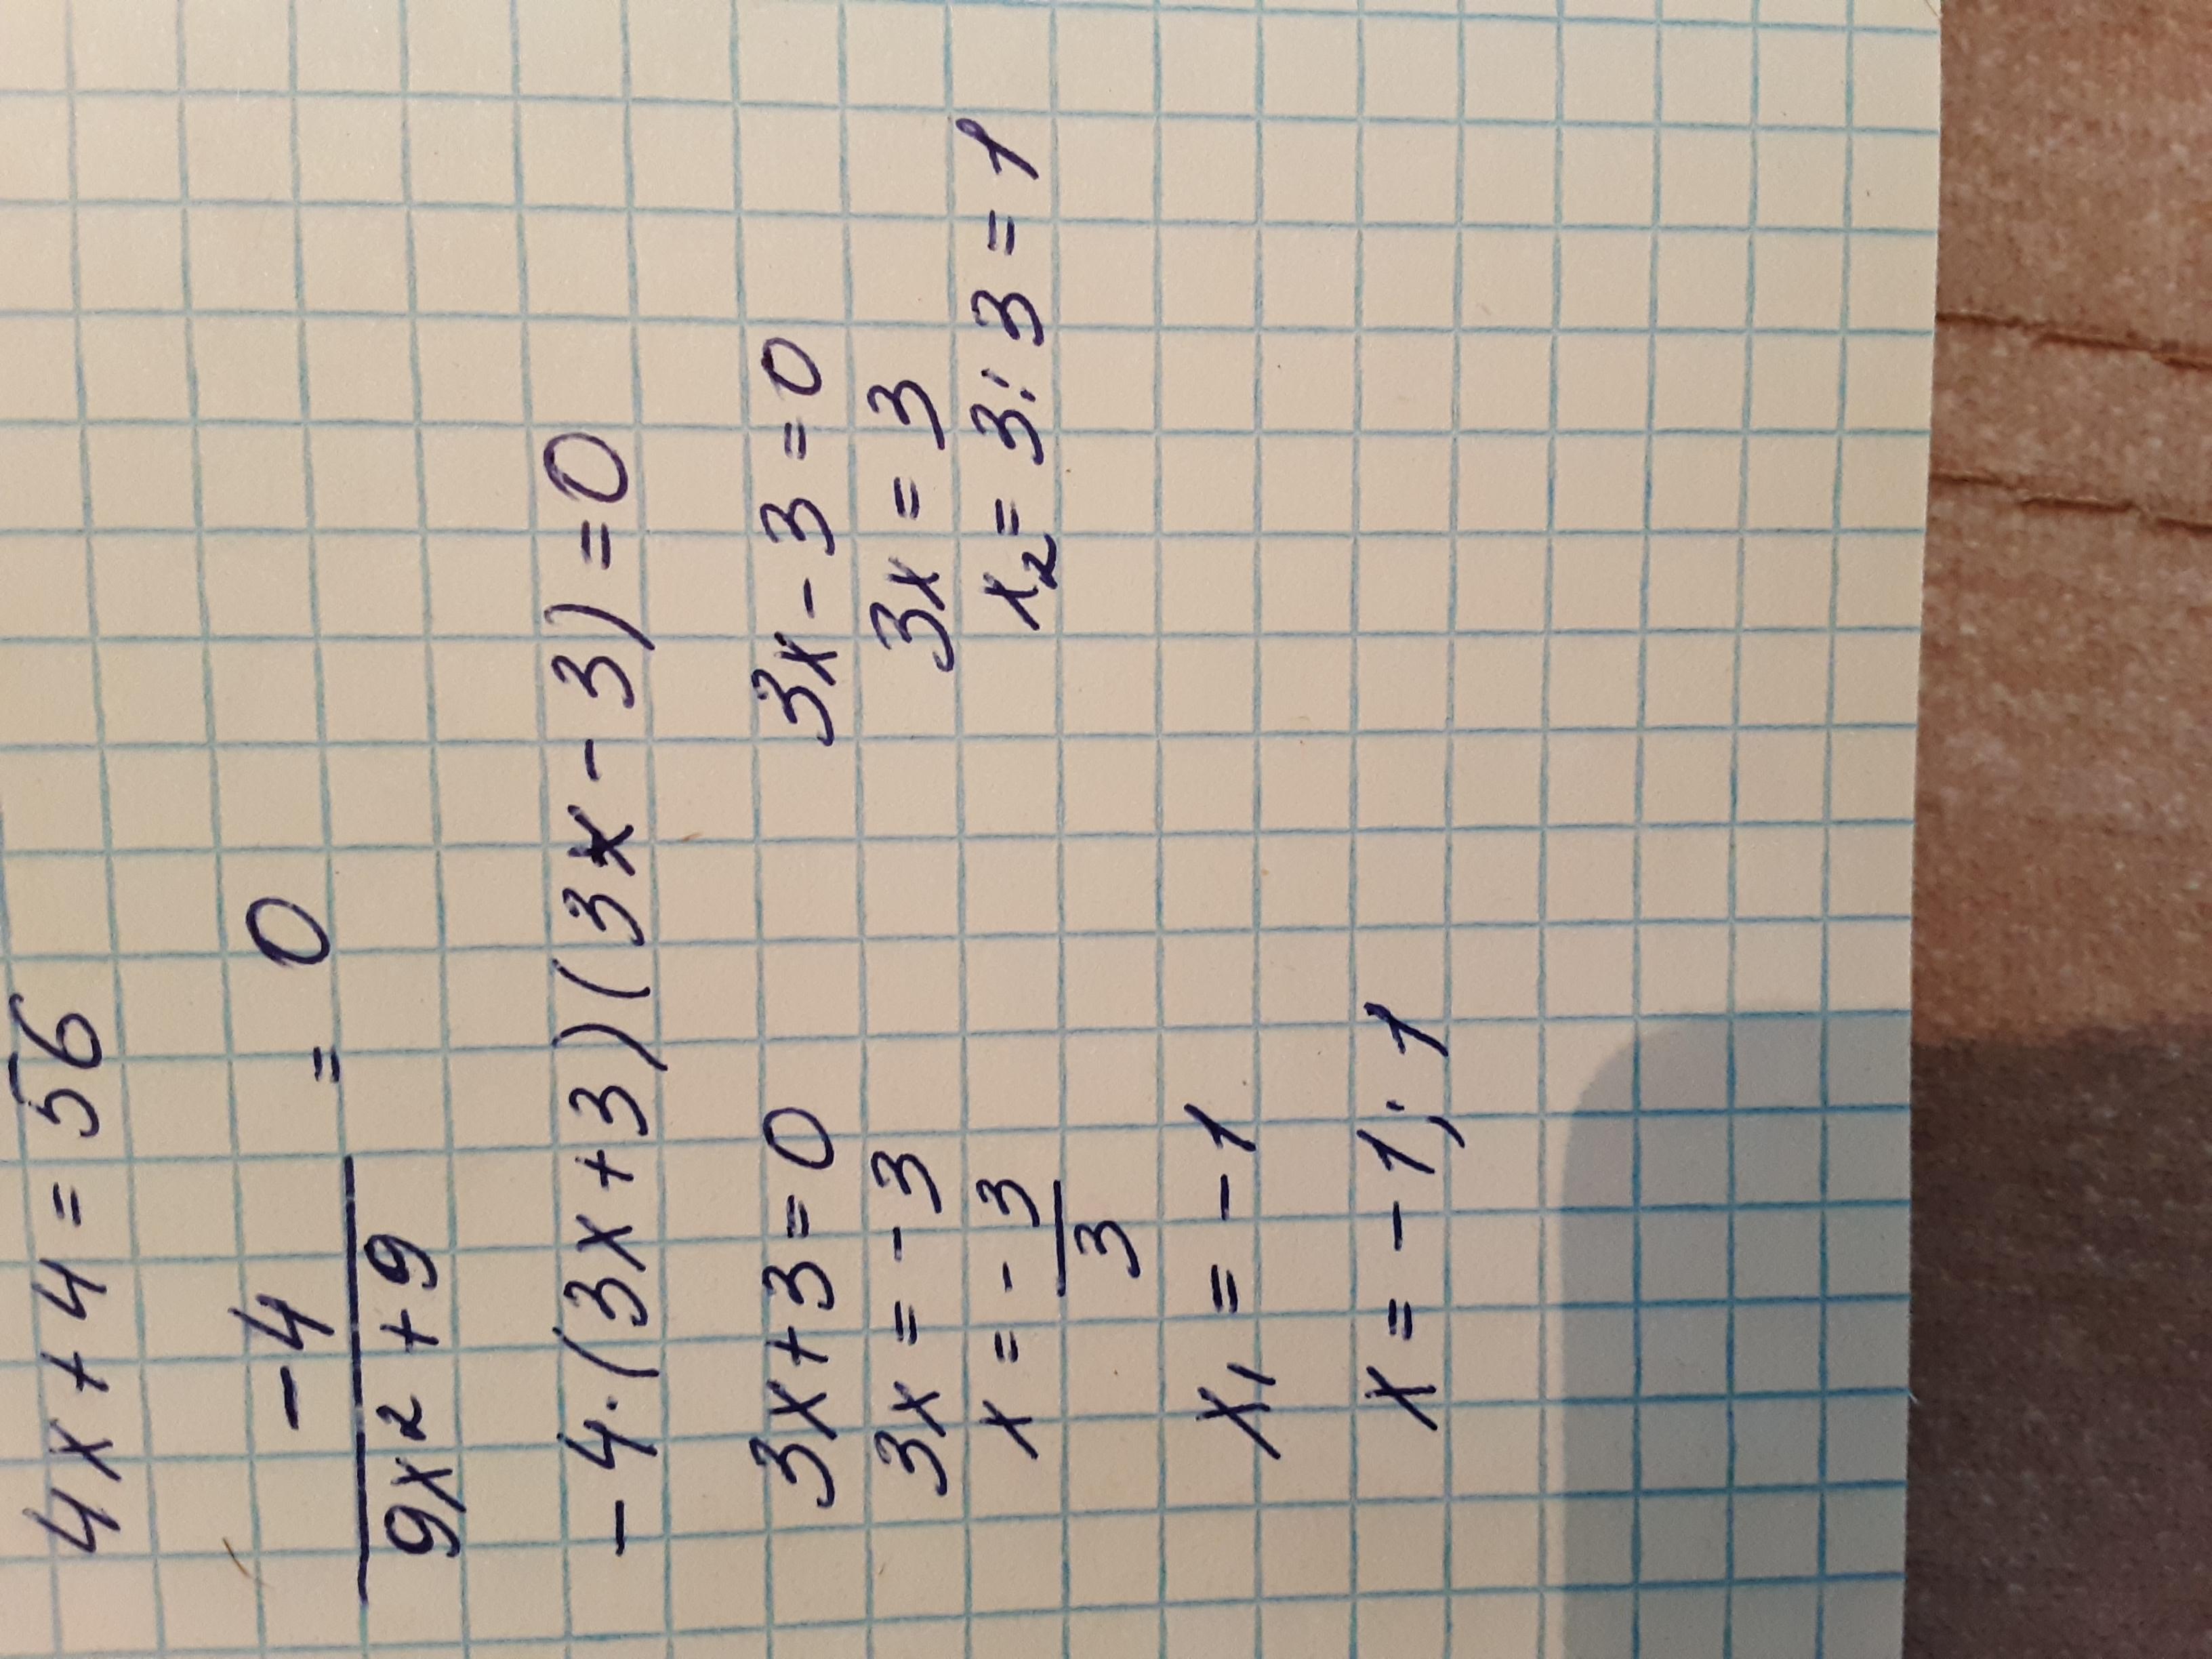 4x + 4 = 56
-4
9x² + 9 = 0
-4·(3x+3)(3x-3)=0
3x+3=0 3x-3=0
3x = -3 3x = 3
x = -3/3 x₂= 3:3=1
x₁ = -1
x = -1; 1